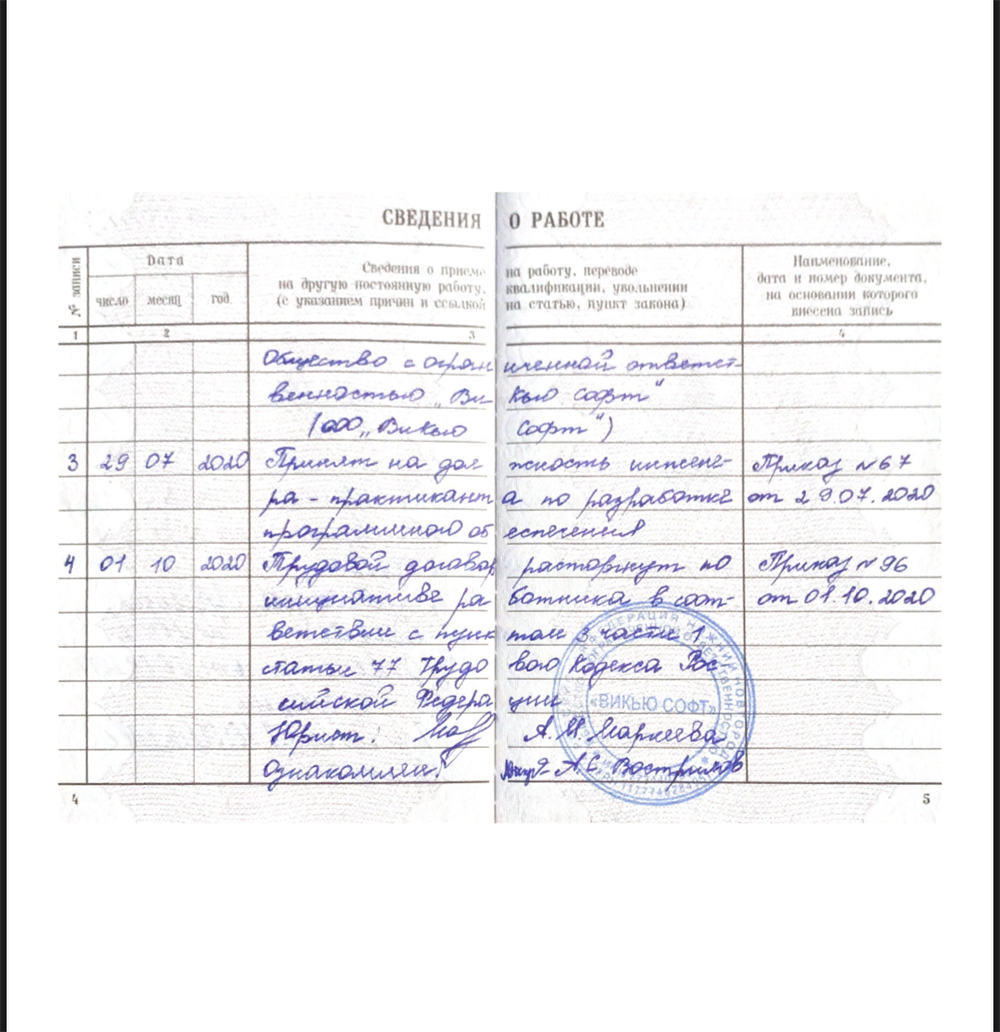 СВЕДЕНИЯ О РАБОТЕ
№ записи
Дата
число
месяц
год
Сведения о приеме на работу, переводе
на другую постоянную работу, квалификации, увольнении
(с указанием причин и ссылкой на статью, пункт закона)
Наименование,
дата и номер документа,
на основании которого
внесена запись
1 2 3 4
Общество с ограниченной ответст-
венностью „Викью Софт“
(ООО „Викью Софт“)
3 29 07 2020 Принят на должность инжене- Приказ №67
ра-практиканта по разработке от 29.07.2020
программного обеспечения
4 01 10 2020 Трудовой договор расторгнут по Приказ №96
инициативе работника в соот- от 01.10.2020
ветствии с пунктом 3 части 1
статьи 77 Трудового Кодекса Рос
сийской Федерации
Юрист: А.И. Маркеева
Ознакомлен: А.С. Вострилов
«ВИКЬЮ СОФТ»
НИЖНИЙ НОВГОРОД
4
5